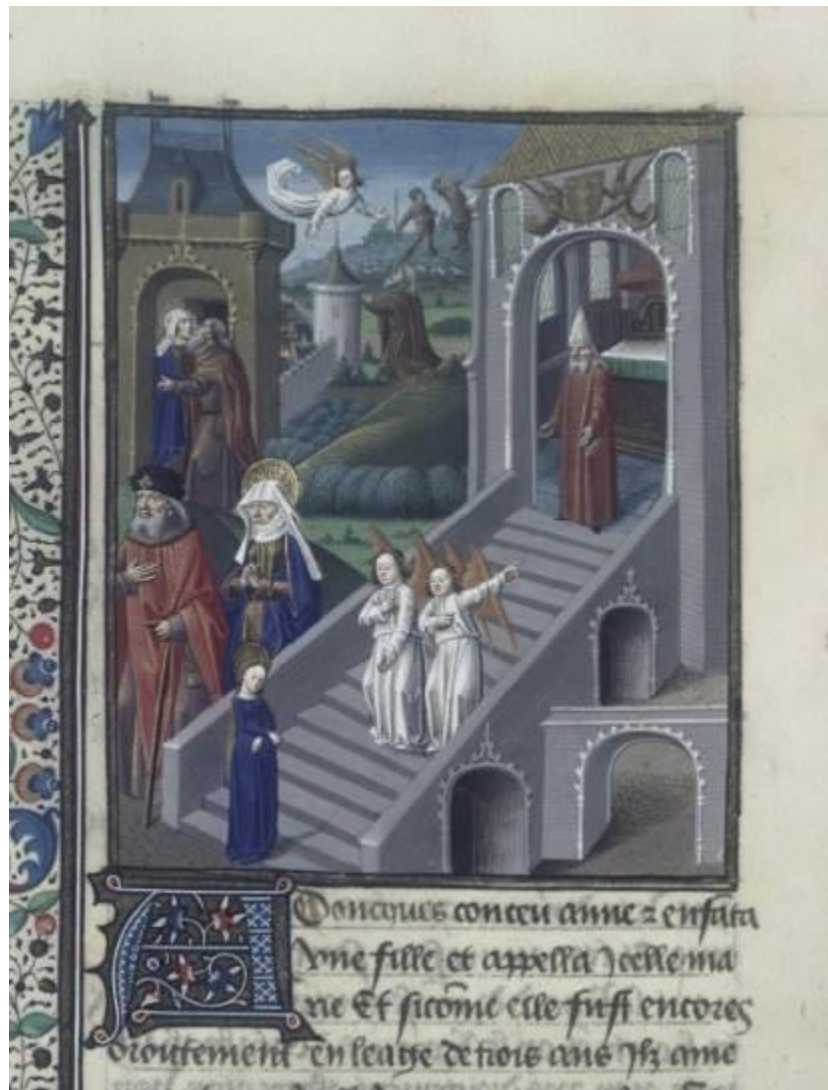 Adoncques conceu anne ⁊ enfãta
vne fille et appella Jcelle ma
rie Et sicõme elle fust encores
droittement en leage de trois ans Jlz ame